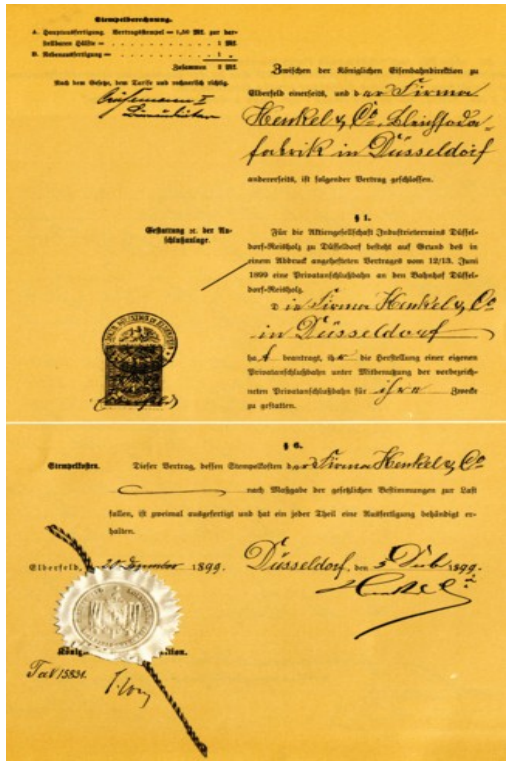 Stempelberechnung.
A. Hauptausfertigung. Vertragsstempel = 1,50 Mk. zur dar-
stellbaren Hälfte = . . . . . . . . . 1 Mk.
B. Nebenausfertigung = . . . . . . . . 1 „
Zusammen 2 Mk.
Nach dem Gesetze, dem Tarife und rechnerisch richtig.
Zwischen der Königlichen Eisenbahndirektion zu
Elberfeld einerseits, und der Firma
Henkel & Co. Bleichsoda-
fabrik in Düsseldorf
andererseits, ist folgender Vertrag geschlossen.
Gestattung ec. der An-
schlußanlage.
§ 1.
Für die Aktiengesellschaft Industrieterrains Düssel-
dorf-Reisholz zu Düsseldorf besteht auf Grund des in
einem Abdruck angehefteten Vertrages vom 12/13. Juni
1899 eine Privatanschlußbahn an den Bahnhof Düssel-
dorf-Reisholz.
Die Firma Henkel & Co
in Düsseldorf
hat beantragt, ihr die Herstellung einer eigenen
Privatanschlußbahn unter Mitbenutzung der vorbezeich-
neten Privatanschlußbahn für ihre Zwecke
zu gestatten.
§ 6.
Stempelkosten.
Dieser Vertrag, dessen Stempelkosten der Firma Henkel & Co
nach Maßgabe der gesetzlichen Bestimmungen zur Last
fallen, ist zweimal ausgefertigt und hat ein jeder Theil eine Ausfertigung behändigt er-
halten.
Elberfeld, 1899.
Düsseldorf, den 1899.
Henkel